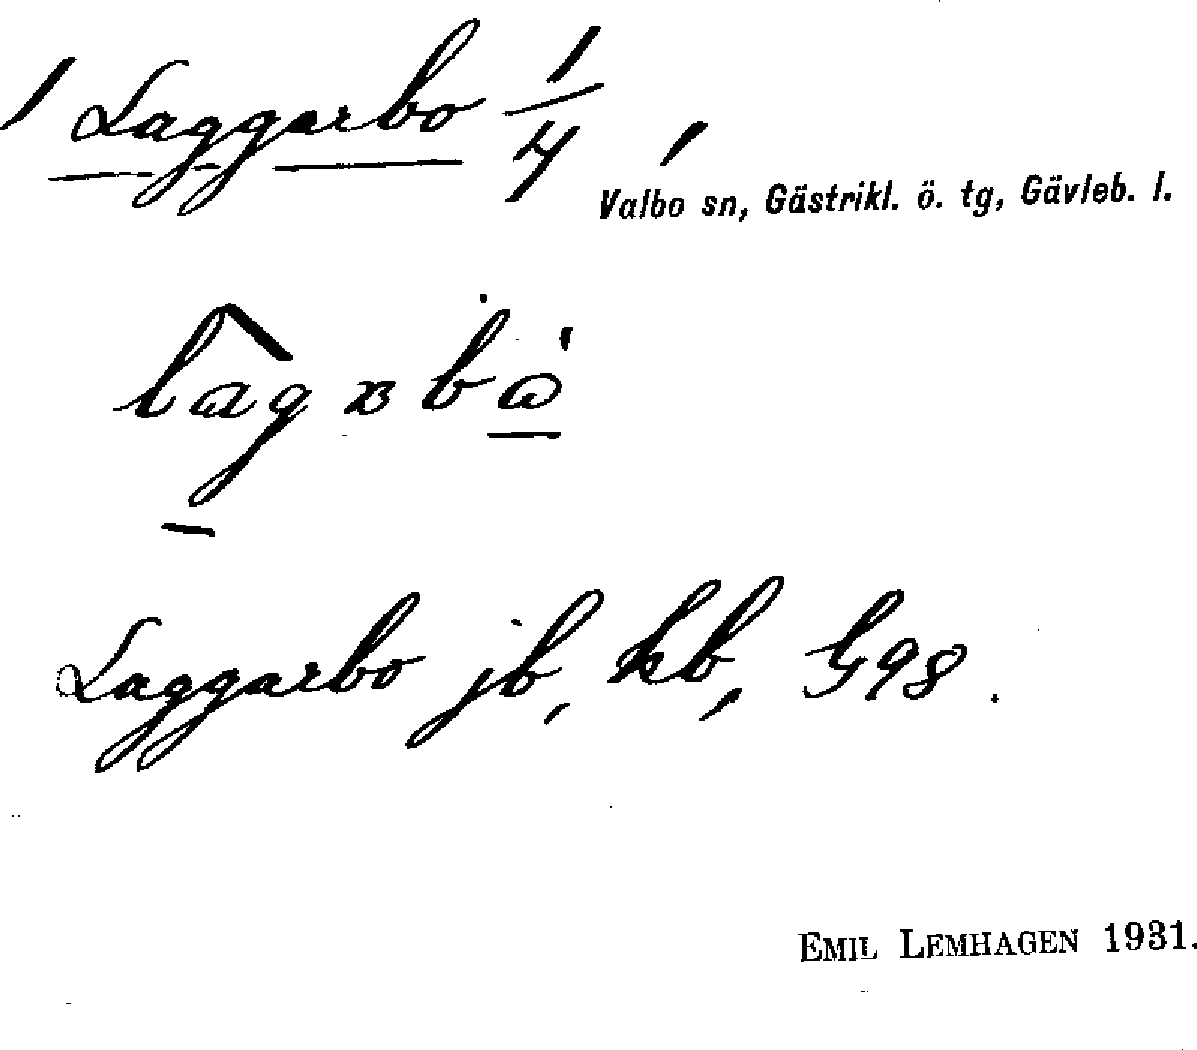 1 Laggarbo 1/4,
Valbo sn, Gästrikl. ö. tg, Gävleb. l.
Laggarbo jb, hb, G98.
EMIL LEMHAGEN 1931.